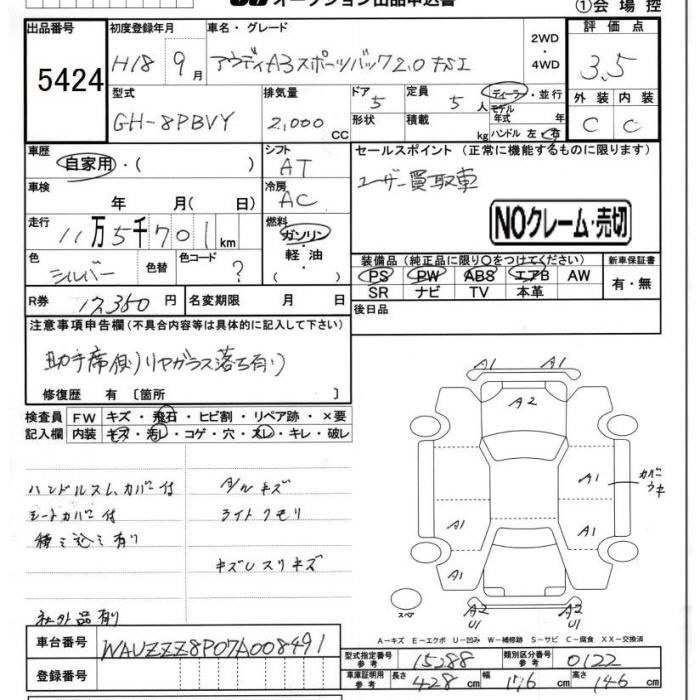 オークション出品申込書 ①会場控
出品番号 初度登録年月 車名・グレード 評価点
5424 H18 9月 アウディA3スポーツバック2.0 FSI 2WD・4WD 3.5
型式 排気量 ドア 定員 ディーラー・並行 外装 内装
GH-8PBVY 2,000cc 5 5人 モデル年式 年 C C
形状 積載 kg ハンドル 左・右
車歴 シフト セールスポイント (正常に機能するものに限ります)
自家用・( ) AT ユーザー買取車
車検 冷房
年 月( 日) AC
走行 燃料 NOクレーム・売切
11万5千701km ガソリン・軽油
色 色替 色コード ( )
シルバー ?
装備品 (純正品に限り○をつけてください) 新車保証書
PS PW ABS エアB AW 有・無
SR ナビ TV 本革
R券 17,350円 名変期限 月 日 後日品
注意事項申告欄(不具合内容等は具体的に記入して下さい)
助手席側リヤガラス落ち有り
修復歴 有 〔箇所 〕
検査員 FW キズ・飛石・ヒビ割・リペア跡・×要
記入欄 内装 キズ・汚レ・コゲ・穴・スレ・キレ・破レ
ハンドルスレ、カバー付 タルキズ
シートカバー付 ライトクモリ
積ミ込ミ有り
キズUスリキズ
社外品有り
A1 A1
A2
A1 カバーウキ
A1 A1
A1
スペア A2 U1 A2 U1
A-キズ E-エクボ U-凹み W-補修跡 S-サビ C-腐食 XX-交換済
車台番号 WAUZZZ8P07A008491
登録番号
型式指定番号 参考 15288 類別区分番号 参考 0122
車庫証明用 参考 長さ 428cm 幅 176cm 高さ 146cm